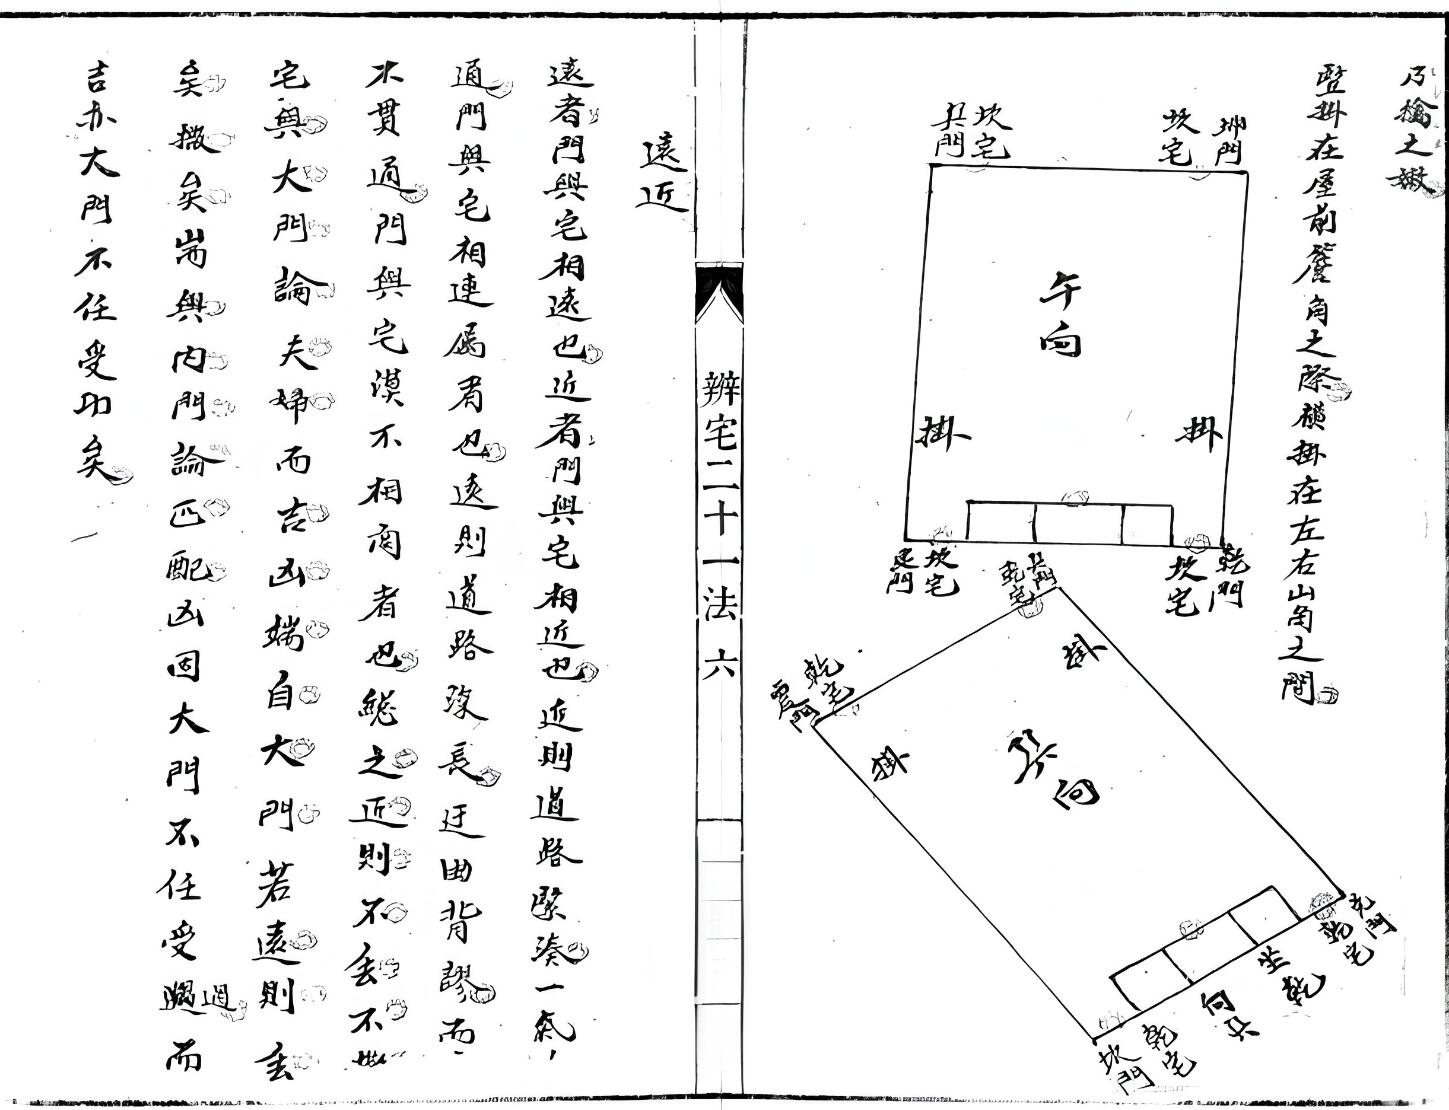 乃擒之嫩
豎掛在屋前簷角之際橫掛在左右山角之間
坎宅
巽門
坎宅
坤門
午向
掛
掛
坎宅
艮門
坎宅
乾門
巽門
乾宅
乾宅
震門
掛
掛
巽向
兌門
乾宅
坐乾
向巽
乾宅
坎門
辨宅二十一法 六
遠近
遠者門與宅相遠也近者門與宅相近也近則道路緊湊一氣
通門與宅相連屬者也遠則道路深長迂曲背謬而
不貫通門與宅漠不相關者也總之近則不去不
宅與大門論夫婦而吉凶端自大門若遠則去
矣撒矣耑與內門論匹配凶固大門不任受過而
吉亦大門不任受功矣